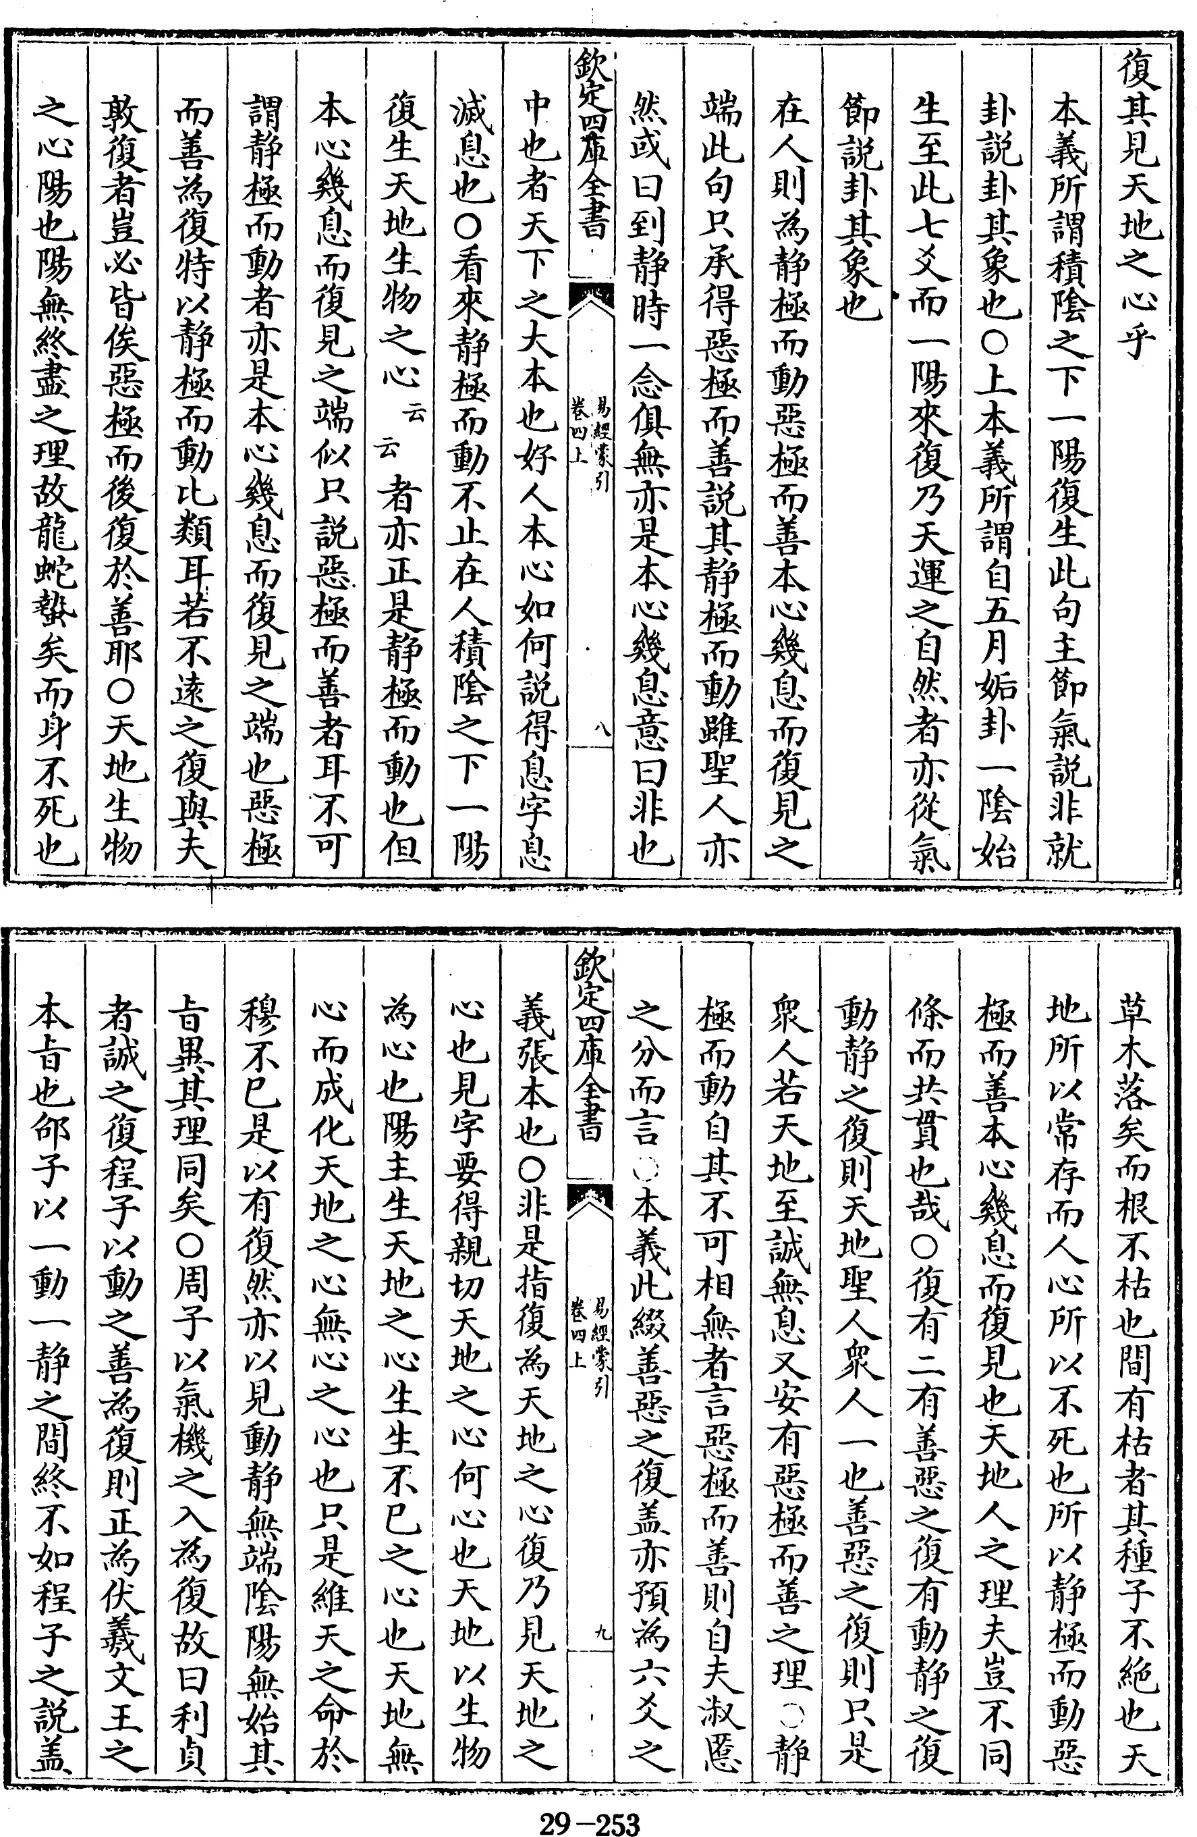 復其見天地之心乎
本義所謂積陰之下一陽復生此句主節氣說非就
卦說卦其象也○上本義所謂自五月姤卦一陰始
生至此七爻而一陽來復乃天運之自然者亦從氣
節說卦其象也
在人則為静極而動惡極而善本心幾息而復見之
端此句只承得惡極而善說其静極而動雖聖人亦
然或曰到静時一念俱無亦是本心幾息意曰非也
欽定四庫全書
易經蒙引
卷四上
八
中也者天下之大本也好人本心如何說得息字息
滅息也○看來静極而動不止在人積陰之下一陽
復生天地生物之心云云者亦正是静極而動也但
本心幾息而復見之端似只說惡極而善者耳不可
謂静極而動者亦是本心幾息而復見之端也惡極
而善為復特以静極而動比類耳若不遠之復與夫
敦復者豈必皆俟惡極而後復於善耶○天地生物
之心陽也陽無終盡之理故龍蛇蟄矣而身不死也
草木落矣而根不枯也間有枯者其種子不絶也天
地所以常存而人心所以不死也所以静極而動惡
極而善本心幾息而復見也天地人之理夫豈不同
條而共貫也哉○復有二有善惡之復有動静之復
動静之復則天地聖人衆人一也善惡之復則只是
衆人若天地至誠無息又安有惡極而善之理○静
極而動自其不可相無者言惡極而善則自夫淑慝
之分而言○本義此綴善惡之復盖亦預為六爻之
欽定四庫全書
易經蒙引
卷四上
九
義張本也○非是指復為天地之心復乃見天地之
心也見字要得親切天地之心何心也天地以生物
為心也陽主生天地之心生生不已之心也天地無
心而成化天地之心無心之心也只是維天之命於
穆不已是以有復然亦以見動静無端陰陽無始其
旨異其理同矣○周子以氣機之入為復故曰利貞
者誠之復程子以動之善為復則正為伏羲文王之
本旨也邵子以一動一静之間終不如程子之說盖
29-253